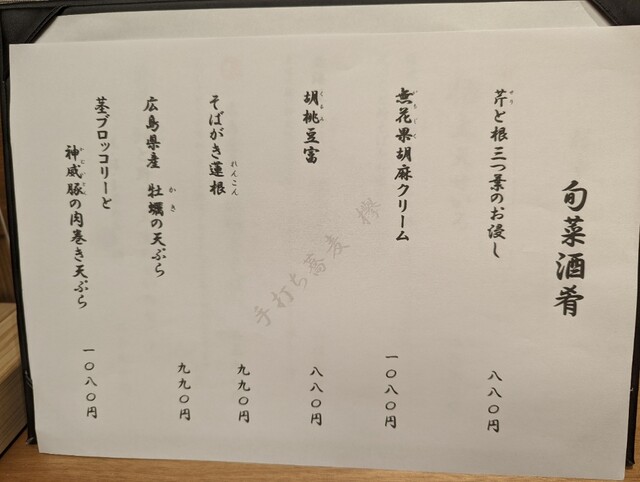 旬菜酒肴
芹と根三つ葉のお浸し
八八〇円
無花果胡麻クリーム
いちじく
一〇八〇円
胡桃豆富
くるみ
八八〇円
そばがき蓮根
れんこん
九九〇円
広島県産 牡蠣の天ぷら
かき
九九〇円
茎ブロッコリーと
神威豚の肉巻き天ぷら
一〇八〇円
手打ち蕎麦 欅